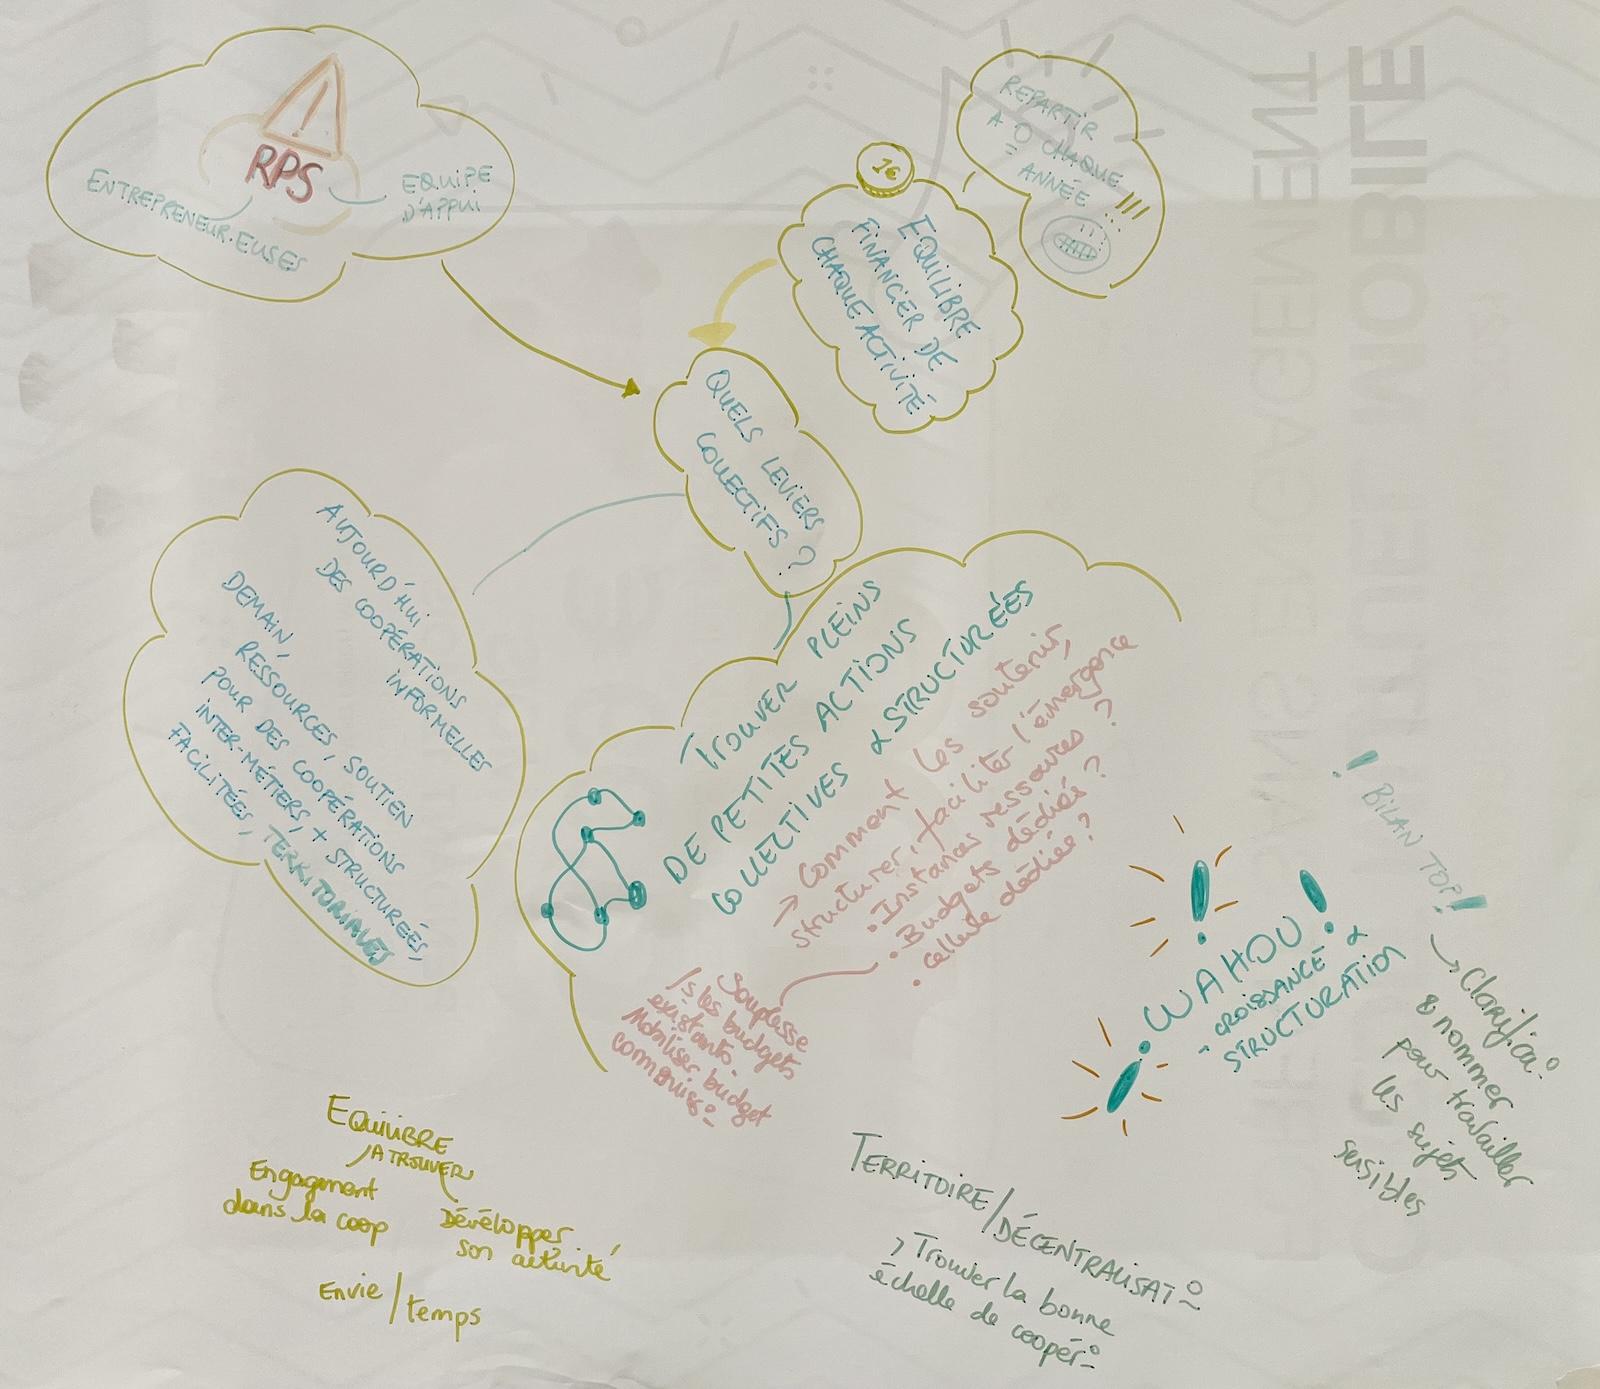 RPS
ENTREPRENEUR·EUSES
EQUIPE
D'APPUI
REPARTIR
A 0 CHAQUE
ANNÉE !!!
1€
EQUILIBRE
FINANCIER DE
CHAQUE ACTIVITÉ
QUELS LEVIERS
COLLECTIFS ?
AUJOURD'HUI
DES COOPÉRATIONS
INFORMELLES
DEMAIN,
RESSOURCES, SOUTIEN
POUR DES COOPÉRATIONS
INTER-MÉTIERS, + STRUCTURÉES,
FACILITÉES, TERRITORIALES
TROUVER PLEINS
DE PETITES ACTIONS
COLLECTIVES & STRUCTURÉES
→ Comment les soutenir,
structurer, faciliter l'émergence ?
• Instances ressources ?
• Budgets dédiés ?
• cellule dédiée ?
Souplesse
/s les budgets
existants.
Mobiliser budget
communs
! BILAN TOP !
→ Clarificaº
& nommer
pour travailler
les sujets
sensibles
WAHOU !
- CROISSANCE &
STRUCTURATION
EQUILIBRE
A TROUVER
Engagement
dans la coop
Développer
son activité
Envie / temps
TERRITOIRE / DÉCENTRALISATº
> Trouver la bonne
échelle de coopérº
ENGAGEMENT
MOBILE